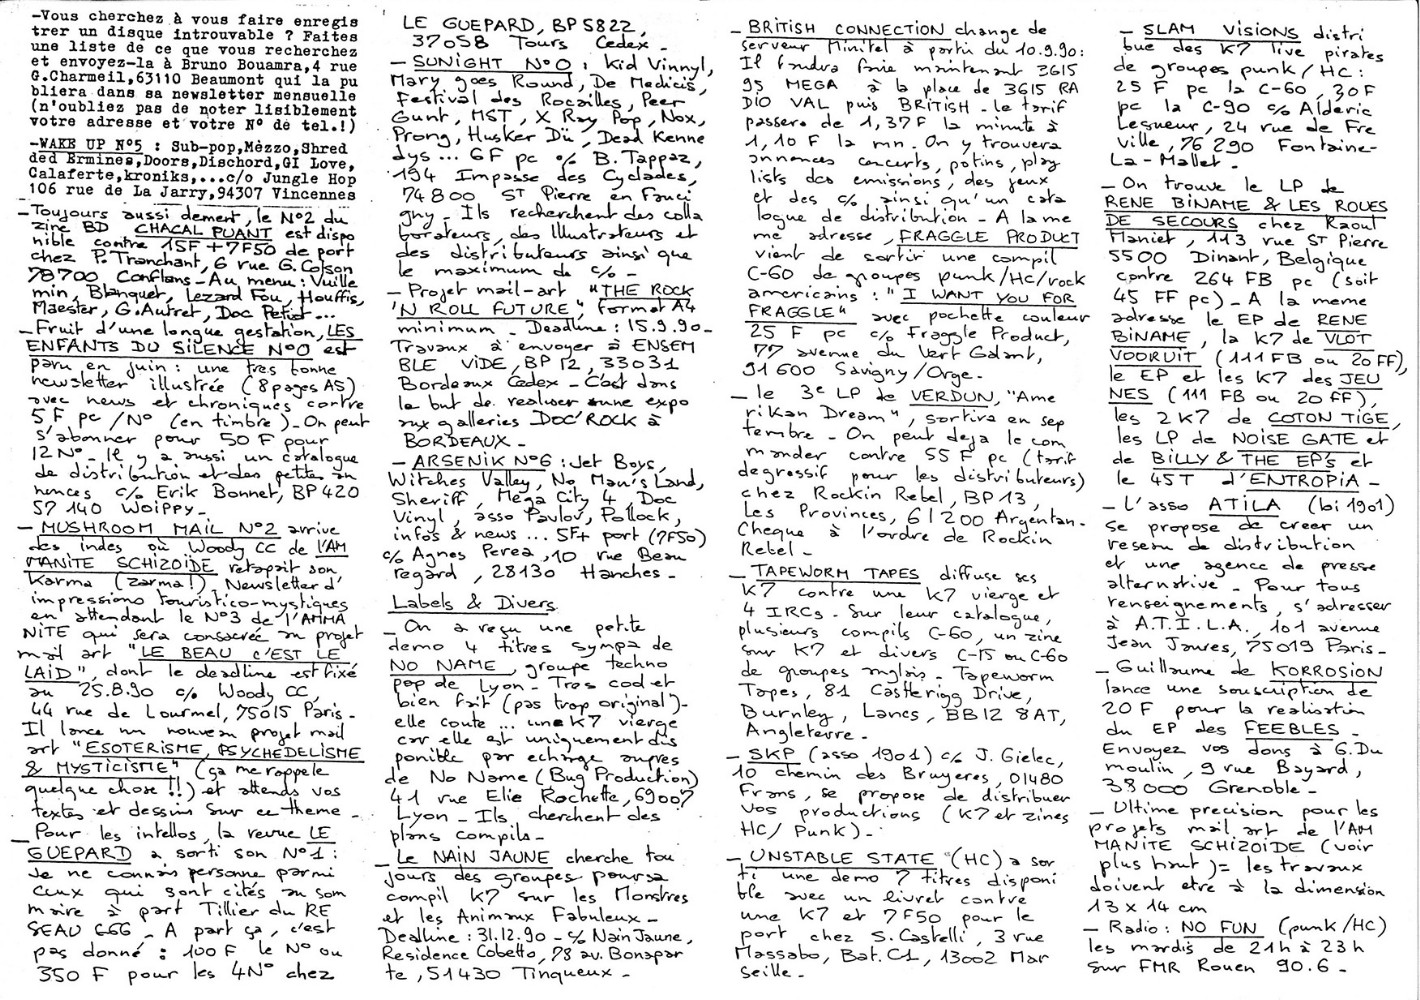 -Vous cherchez à vous faire enregis
trer un disque introuvable ? Faites
une liste de ce que vous recherchez
et envoyez-la à Bruno Bouamra,4 rue
G.Charmeil,63110 Beaumont qui la pu
bliera dans sa newsletter mensuelle
(n'oubliez pas de noter lisiblement
votre adresse et votre N° de tel.!)
-WAKE UP N°5 : Sub-pop,Mèzzo,Shred
ded Ermines,Doors,Dischord,GI Love,
Calaferte,kroniks,...c/o Jungle Hop
106 rue de La Jarry,94307 Vincennes
- Toujours aussi dement, le N°2 du
zine BD CHACAL PUANT est dispo
nible contre 15F + 7F50 de port
chez P. Tranchant, 6 rue G. Colson
78700 Conflans - Au menu : Vuille
min, Blanquet, Lezard Fou, Houffis,
Maester, G. Autret, Doc Petiot...
- Fruit d'une longue gestation, LES
ENFANTS DU SILENCE N°0 est
paru en juin : une tres bonne
newsletter illustrée (8 pages A5)
avec news et chroniques contre
5 F pc / N° (en timbre) - On peut
s'abonner pour 50 F pour
12 N° - Il y a aussi un catalogue
de distribution et des petites an
nonces c/o Erik Bonnet, BP 420
57 140 Woippy -
- MUSHROOM MAIL N°2 arrive
des indes où Woody CC de l'AM
MANITE SCHIZOÏDE retapait son
Karma (zarma !) Newsletter d'
impressions touristico-mystiques
en attendant le N°3 de l'AMMA
NITE qui sera consacrée au projet
mail art "LE BEAU C'EST LE
LAID", dont le deadline est fixé
au 25.8.90 c/o Woody CC,
44 rue de Lourmel, 75015 Paris -
Il lance un nouveau projet mail
art "ESOTERISME, PSYCHEDELISME
& MYSTICISME" (ça me rappele
quelque chose !!) et attends vos
textes et dessins sur ce theme -
- Pour les intellos, la revue LE
GUEPARD a sorti son N°1 :
Je ne connais personne parmi
ceux qui sont cités au som
maire à part Tillier du RE
SEAU 666 - A part ça, c'est
pas donné : 100 F le N° ou
350 F pour les 4 N° chez
LE GUEPARD, BP 5822,
37058 Tours Cedex -
- SUNIGHT N°0 : Kid Vinnyl,
Mary goes Round, De Medicis,
Festival des Rocailles, Peer
Gunt, MST, X Ray Pop, Nox,
Prong, Husker Dü, Dead Kenne
dys... 6F pc c/o B. Tappaz,
194 Impasse des Cyclades,
74800 ST Pierre en Fauci
gny - Ils recherchent des colla
borateurs, des Illustrateurs et
des distributeurs ainsi que
le maximum de c/o -
- Projet mail-art "THE ROCK
'N ROLL FUTURE", format A4
minimum - Deadline : 15.9.90 -
Travaux à envoyer à ENSEM
BLE VIDE, BP 12, 33031
Bordeaux Cedex - C'est dans
le but de realiser une expo
aux galleries DOC'ROCK à
BORDEAUX -
- ARSENIK N°6 : Jet Boys,
Witches Valley, No Man's Land,
Sheriff, Mega City 4, Doc
Vinyl, asso Pavlov, Pollock,
infos & news ... 5F + port (7F50)
c/o Agnes Perea, 10 rue Beau
regard, 28130 Hanches -
Labels & Divers
- On a reçu une petite
demo 4 titres sympa de
NO NAME, groupe techno
pop de Lyon - Tres cod et
bien fait (pas trop original) -
elle coute ... une K7 vierge
car elle est uniquement dis
ponible par echange aupres
de No Name (Bug Production)
41 rue Elie Rochette, 69007
Lyon - Ils cherchent des
plans compils -
- Le NAIN JAUNE cherche tou
jours des groupes pour sa
compil K7 sur les Monstres
et les Animaux Fabuleux -
Deadline : 31.12.90 - c/o Nain Jaune,
Residence Cobetto, 78 av. Bonapar
te, 51430 Tinqueux -
- BRITISH CONNECTION change de
serveur Minitel à partir du 10.9.90 :
Il faudra faire maintenant 3615
95 MEGA à la place de 3615 RA
DIO VAL puis BRITISH - le tarif
passera de 1,37F la minute à
1,10 F la mn. On y trouvera
annonces concerts, potins, play
lists des emissions, des jeux
et des c/o ainsi qu'un cata
logue de distribution - A la me
me adresse, FRAGGLE PRODUCT
vient de sortir une compil
C-60 de groupes punk/HC/rock
americains : "I WANT YOU FOR
FRAGGLE" avec pochette couleur
25 F pc c/o Fraggle Product,
77 avenue du Vert Galant,
91600 Savigny/Orge -
- le 3e LP de VERDUN, "Ame
rikan Dream", sortira en sep
tembre - On peut deja le com
mander contre 55 F pc (tarif
degressif pour les distributeurs)
chez Rockin Rebel, BP 13,
Les Provinces, 61200 Argentan -
Cheque à l'ordre de Rockin
Rebel -
- TAPEWORM TAPES diffuse ses
K7 contre une K7 vierge et
4 IRCs - Sur leur catalogue,
plusieurs compils C-60, un zine
sur K7 et divers C-15 ou C-60
de groupes anglais - Tapeworm
Tapes, 81 Castlerigg Drive,
Burnley, Lancs, BB12 8AT,
Angleterre -
- SKP (asso 1901) c/o J. Gielec,
10 chemin des Bruyeres, 01480
Frans, se propose de distribuer
vos productions (K7 et zines
HC/ Punk) -
- UNSTABLE STATE (HC) a sor
ti une demo 7 titres disponi
ble avec un livret contre
une K7 et 7F50 pour le
port chez S. Castelli, 3 rue
Massabo, Bat. C1, 13002 Mar
seille -
- SLAM VISIONS distri
bue des K7 live pirates
de groupes punk/HC :
25 F pc la C-60, 30F
pc la C-90 c/o Alderic
Lesueur, 24 rue de Fre
ville, 76 290 Fontaine-
La-Mallet -
- On trouve le LP de
RENE BINAME & LES ROUES
DE SECOURS chez Raoul
Maniet, 113 rue ST Pierre
5500 Dinant, Belgique
contre 264 FB pc (soit
45 FF pc) - A la meme
adresse le EP de RENE
BINAME, la K7 de VLOT
VOORUIT (111 FB ou 20 FF),
le EP et les K7 des JEU
NES (111 FB ou 20 FF),
les 2 K7 de COTON TIGE,
les LP de NOISE GATE et
de BILLY & THE EP's et
le 45T d'ENTROPIA -
- L'asso ATILA (loi 1901)
se propose de creer un
reseau de distribution
et une agence de presse
alternative - Pour tous
renseignements, s'adresser
à A.T.I.L.A., 101 avenue
Jean Jaures, 75019 Paris -
- Guillaume de KORROSION
lance une souscription de
20 F pour la realisation
du EP des FEEBLES -
Envoyez vos dons à G. Du
moulin, 9 rue Bayard,
38000 Grenoble -
- Ultime precision pour les
projets mail art de l'AM
MANITE SCHIZOÏDE (voir
plus haut) = les travaux
doivent etre à la dimension
13 x 14 cm
- Radio : NO FUN (punk/HC)
les mardis de 21h à 23h
sur FMR Rouen 90.6 -